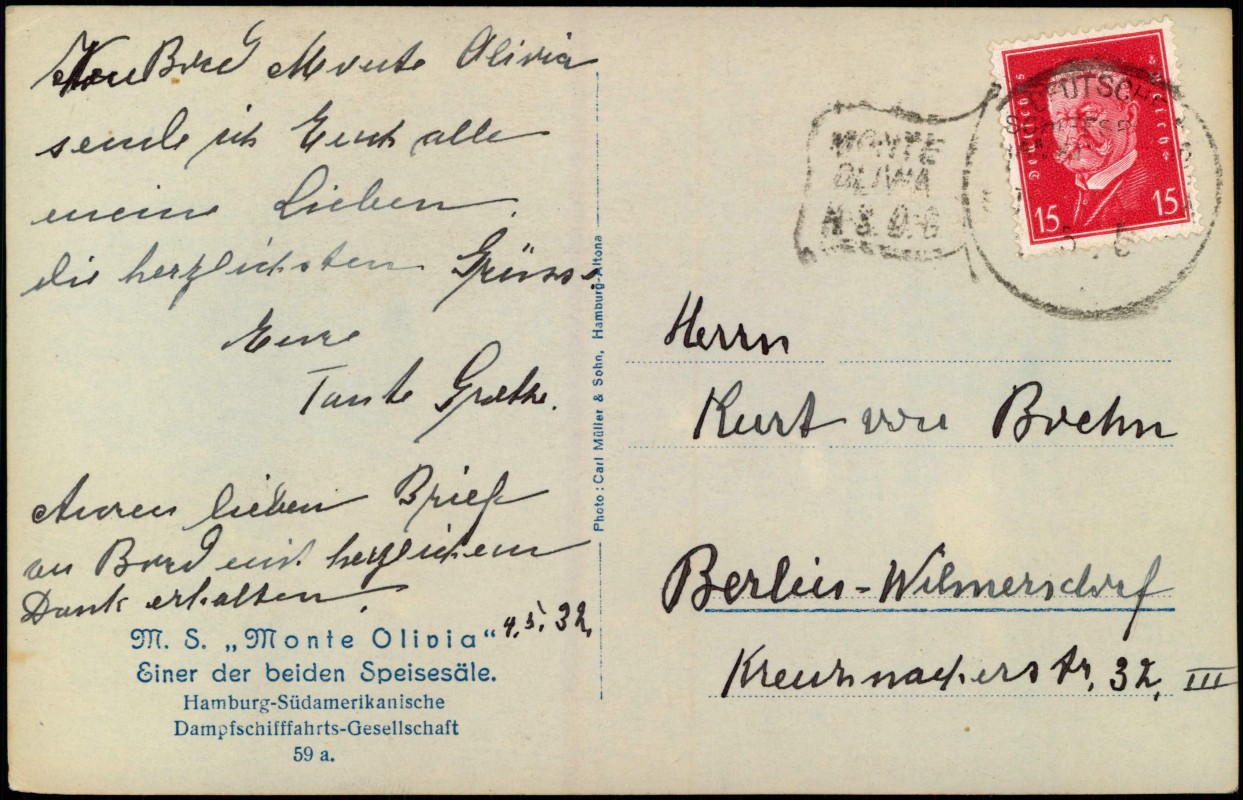 Von Bord Monte Olivia
sende ich Euch alle
meine Lieben
die herzlichsten Grüsse.
Eure
Tante Grethe.
Euren lieben Brief
an Bord mit herzlichem
Dank erhalten.
4.5.32.
M. S. „Monte Olivia“
Einer der beiden Speisesäle.
Hamburg-Südamerikanische
Dampfschifffahrts-Gesellschaft
59 a.
Photo: Carl Müller & Sohn, Hamburg-Altona
MONTE
OLIVIA
H.S.D.G
DEUTSCHE
Deutsches Reich
15 15
Herrn
Kurt von Boehn
Berlin-Wilmersdorf
Kreuznacherstr. 32, III